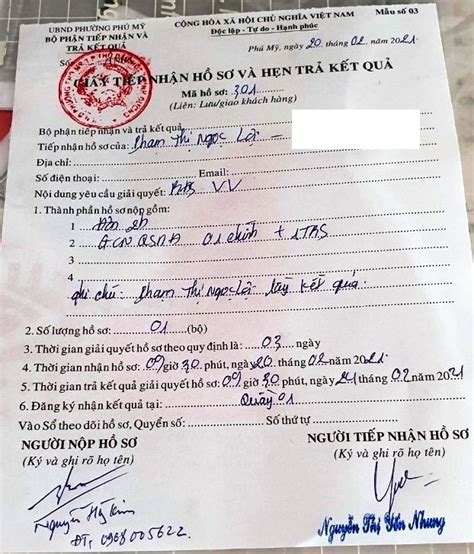 UBND PHƯỜNG PHÚ MỸ
BỘ PHẬN TIẾP NHẬN VÀ
TRẢ KẾT QUẢ
Số:
CỘNG HÒA XÃ HỘI CHỦ NGHĨA VIỆT NAM
Độc lập - Tự do - Hạnh phúc
Mẫu số 03
Phú Mỹ, ngày 20 tháng 02 năm 2021
GIẤY TIẾP NHẬN HỒ SƠ VÀ HẸN TRẢ KẾT QUẢ
Mã hồ sơ: 301
(Liên: Lưu/giao khách hàng)
Bộ phận tiếp nhận và trả kết quả
Tiếp nhận hồ sơ của: Phạm Thị Ngọc
Địa chỉ:
Số điện thoại: Email:
Nội dung yêu cầu giải quyết: VV
1. Thành phần hồ sơ nộp gồm:
1
2 GCN QSDĐ 01 chính +
3
4
ghi chú: Phạm Thị Ngọc lấy kết quả.
2. Số lượng hồ sơ: 01 (bộ)
3. Thời gian giải quyết hồ sơ theo quy định là: 03 ngày
4. Thời gian nhận hồ sơ: 09 giờ 30 phút, ngày 20 tháng 02 năm 2021
5. Thời gian trả kết quả giải quyết hồ sơ: 09 giờ 30 phút, ngày 24 tháng 02 năm 2021
6. Đăng ký nhận kết quả tại: Quầy 01
Vào Sổ theo dõi hồ sơ, Quyển số: Số thứ tự
NGƯỜI NỘP HỒ SƠ
(Ký và ghi rõ họ tên)
NGƯỜI TIẾP NHẬN HỒ SƠ
(Ký và ghi rõ họ tên)
Nguyễn
ĐT: 0968005622
Nguyễn Thị Yến Nhung